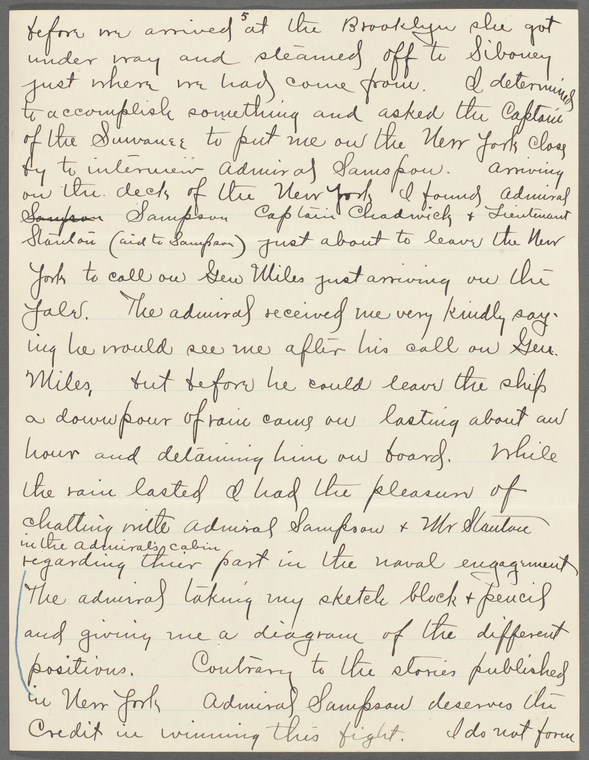 5
before we arrived at the Brooklyn she got
under way and steamed off to Siboney
just where we had come from. I determined
to accomplish something and asked the Captain
of the Suwanee to put me on the New York close
by to interview Admiral Sampson. Arriving
on the deck of the New York I found Admiral
Sampson Sampson Captain Chadwick & Lieutenant
Stanton (aid to Sampson) just about to leave the New
York to call on Gen Miles just arriving on the
Yale. The admiral received me very kindly say-
ing he would see me after his call on Gen.
Miles, but before he could leave the ship
a downpour of rain came on lasting about an
hour and detaining him on board. While
the rain lasted I had the pleasure of
chatting with Admiral Sampson & Mr Stanton
in the admiral's cabin
regarding their part in the naval engagement
The admiral taking my sketch block & pencil
and giving me a diagram of the different
positions. Contrary to the stories published
in New York Admiral Sampson deserves the
Credit in winning this fight. I do not form